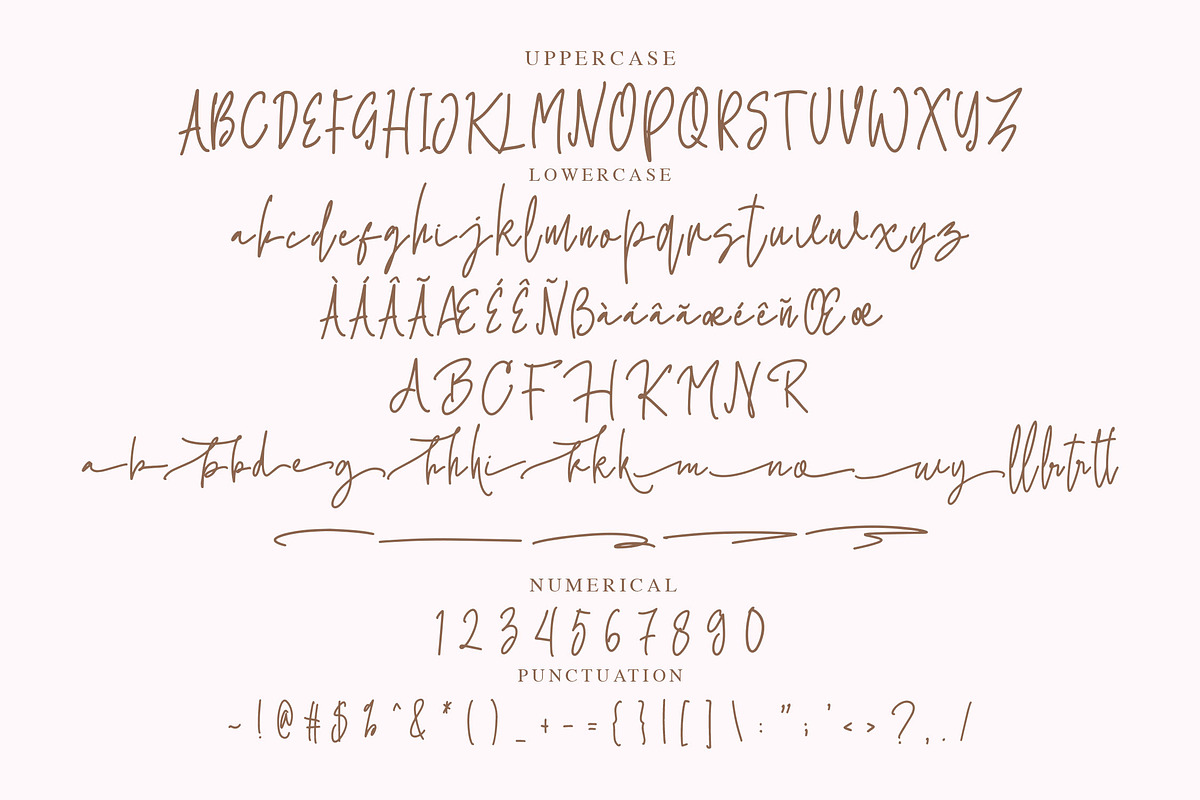 UPPERCASE
ABCDEFGHIJKLMNOPQRSTUVWXYZ
LOWERCASE
abcdefghijklmnopqrstuvwxyz
ÀÁÂÃÆÉÊÑßàáâãæéêñŒœ
ABCFHKMNR
NUMERICAL
1234567890
PUNCTUATION
~!@#$%^&*()_+-={}|[]\:";'<>?,./